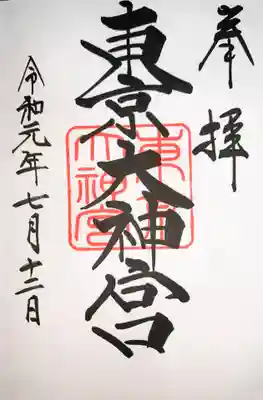 奉拝
東京大神宮
東京大神宮
令和元年七月十二日